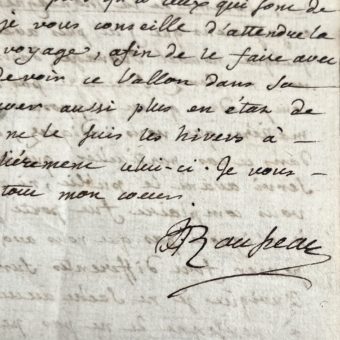 ceux qui font de
je vous conseille d'attendre la
voyage, afin de le faire avec
devoir ce Vallon dans sa
ver aussi plus en état de
ne le suis les hivers à -
lièrement celui-ci. Je vous -
tout mon coeur.
JJRousseau